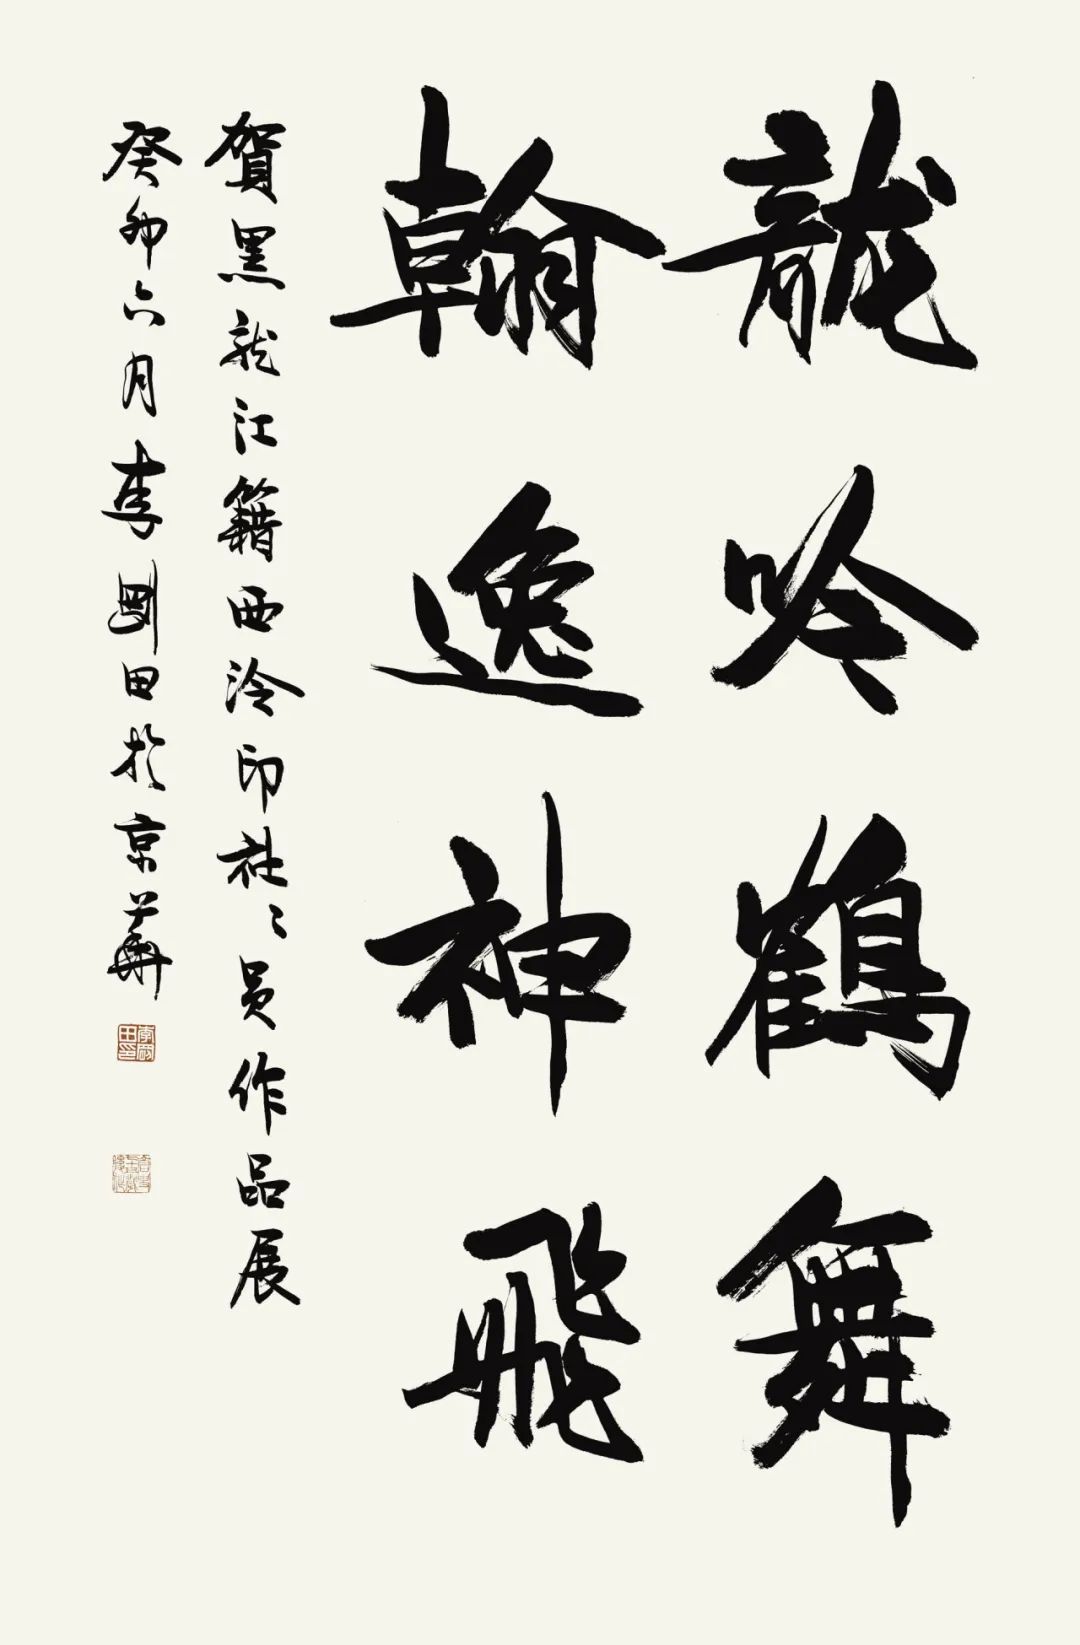 龍吟鶴舞
翰逸神飛
賀黑龙江籍西泠印社〻員作品展
癸卯六月李剛田於京華